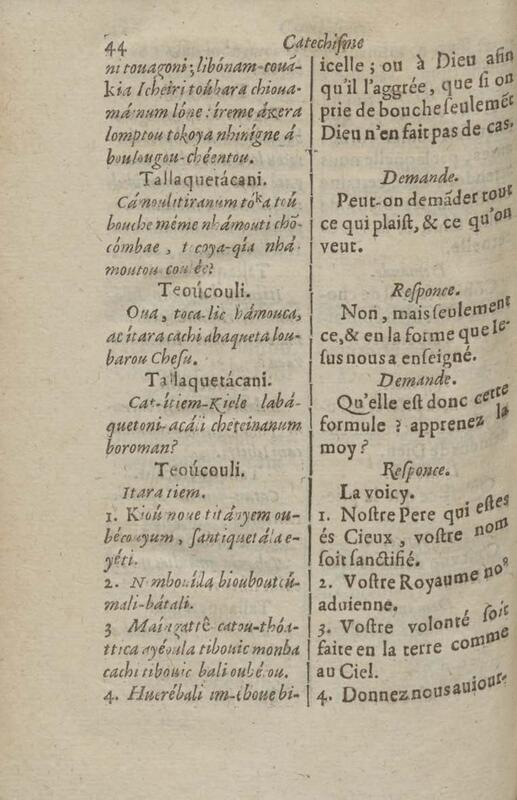 44
Catechisme
ni touagoni; libónam-couã-
kia Icheiri toúbara chioua-
mámum lóne: ireme ákera
lomptou tokoya nhinígne á
boulougou-chéentou.
Tallaquetácani.
Cánoulitiranum tóka toú
bouche méme nhámouti chõ-
cómbae, tocoya-qía nhá-
moutou coulée?
Teoúcouli.
Oua, toca-lic hámouca,
ac itara cachi abaqueta lou-
barou Chesu.
Tallaquetácani.
Cat-itiem-Kiele labá-
quetoni-acáli cheteinanum
boroman?
Teoúcouli.
Itara tiem.
1. Kioúmoue titányem ou-
bécouyum, santiquetála e-
yéti.
2. N-mbouílla biouboutcú-
mali-bátali.
3 Maingattê catou-thóa-
ttica ayéoula tibouic monba
cachi tibouic bali oubécou.
4. Huerébali im-eboue bi-
icelle; ou à Dieu afin
qu'il l'aggrée, que si on
prie de bouche seulemẽt
Dieu n'en fait pas de cas.
Demande.
Peut-on demãder tout
ce qui plaist, & ce qu'on
veut.
Responce.
Non, mais seulement
ce, & en la forme que Ie-
sus nous a enseigné.
Demande.
Qu'elle est donc cette
formule ? apprenez la
moy ?
Responce.
La voicy.
1. Nostre Pere qui estes
és Cieux, vostre nom
soit sanctifié.
2. Vostre Royaume nos
aduienne.
3. Vostre volonté soit
faite en la terre comme
au Ciel.
4. Donnez nous auiour-